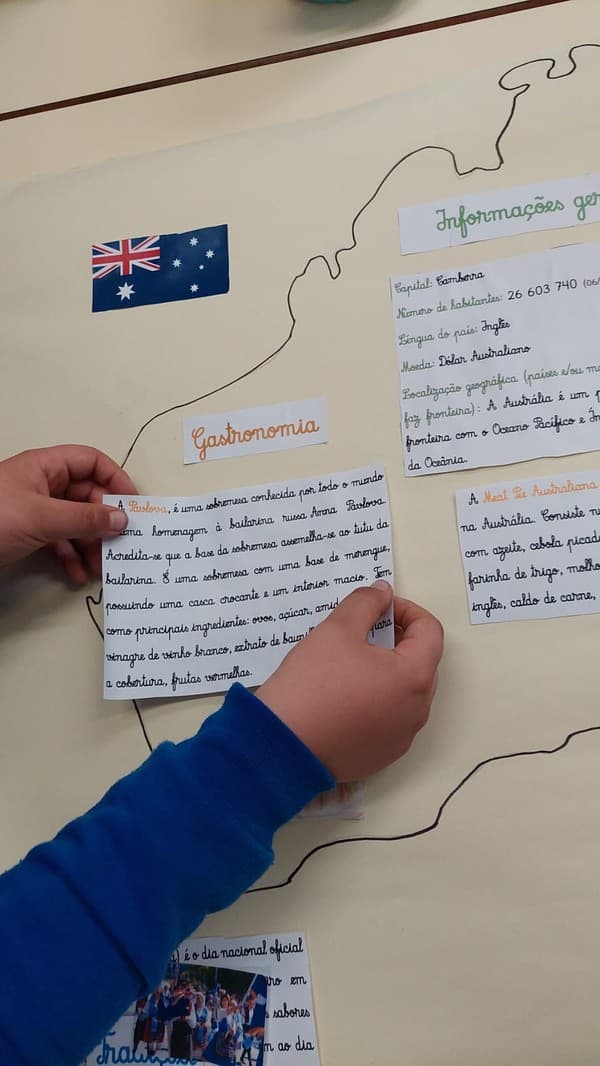 Informações ger
Capital: Camberra
Número de habitantes: 26 603 740 (06/
Língua do país: Inglês
Moeda: Dólar Australiano
Localização geográfica (países e/ou ma
faz fronteira): A Austrália é um p
fronteira com o Oceano Pacífico e Ín
da Oceânia.
Gastronomia
A Pavlova, é uma sobremesa conhecida por todo o mundo
uma homenagem à bailarina russa Anna Pavlova.
Acredita-se que a base da sobremesa assemelha-se ao tutu da
bailarina. É uma sobremesa com uma base de merengue,
possuindo uma casca crocante e um interior macio. Tem
como principais ingredientes: ovos, açúcar, amid
vinagre de vinho branco, extrato de baunil para
a cobertura, frutas vermelhas.
A Meat Pie Australiana
na Austrália. Consiste n
com azeite, cebola picad
farinha de trigo, molho
inglês, caldo de carne,
) é o dia nacional oficial
iro em
s sabores
m ao dia
Tradições